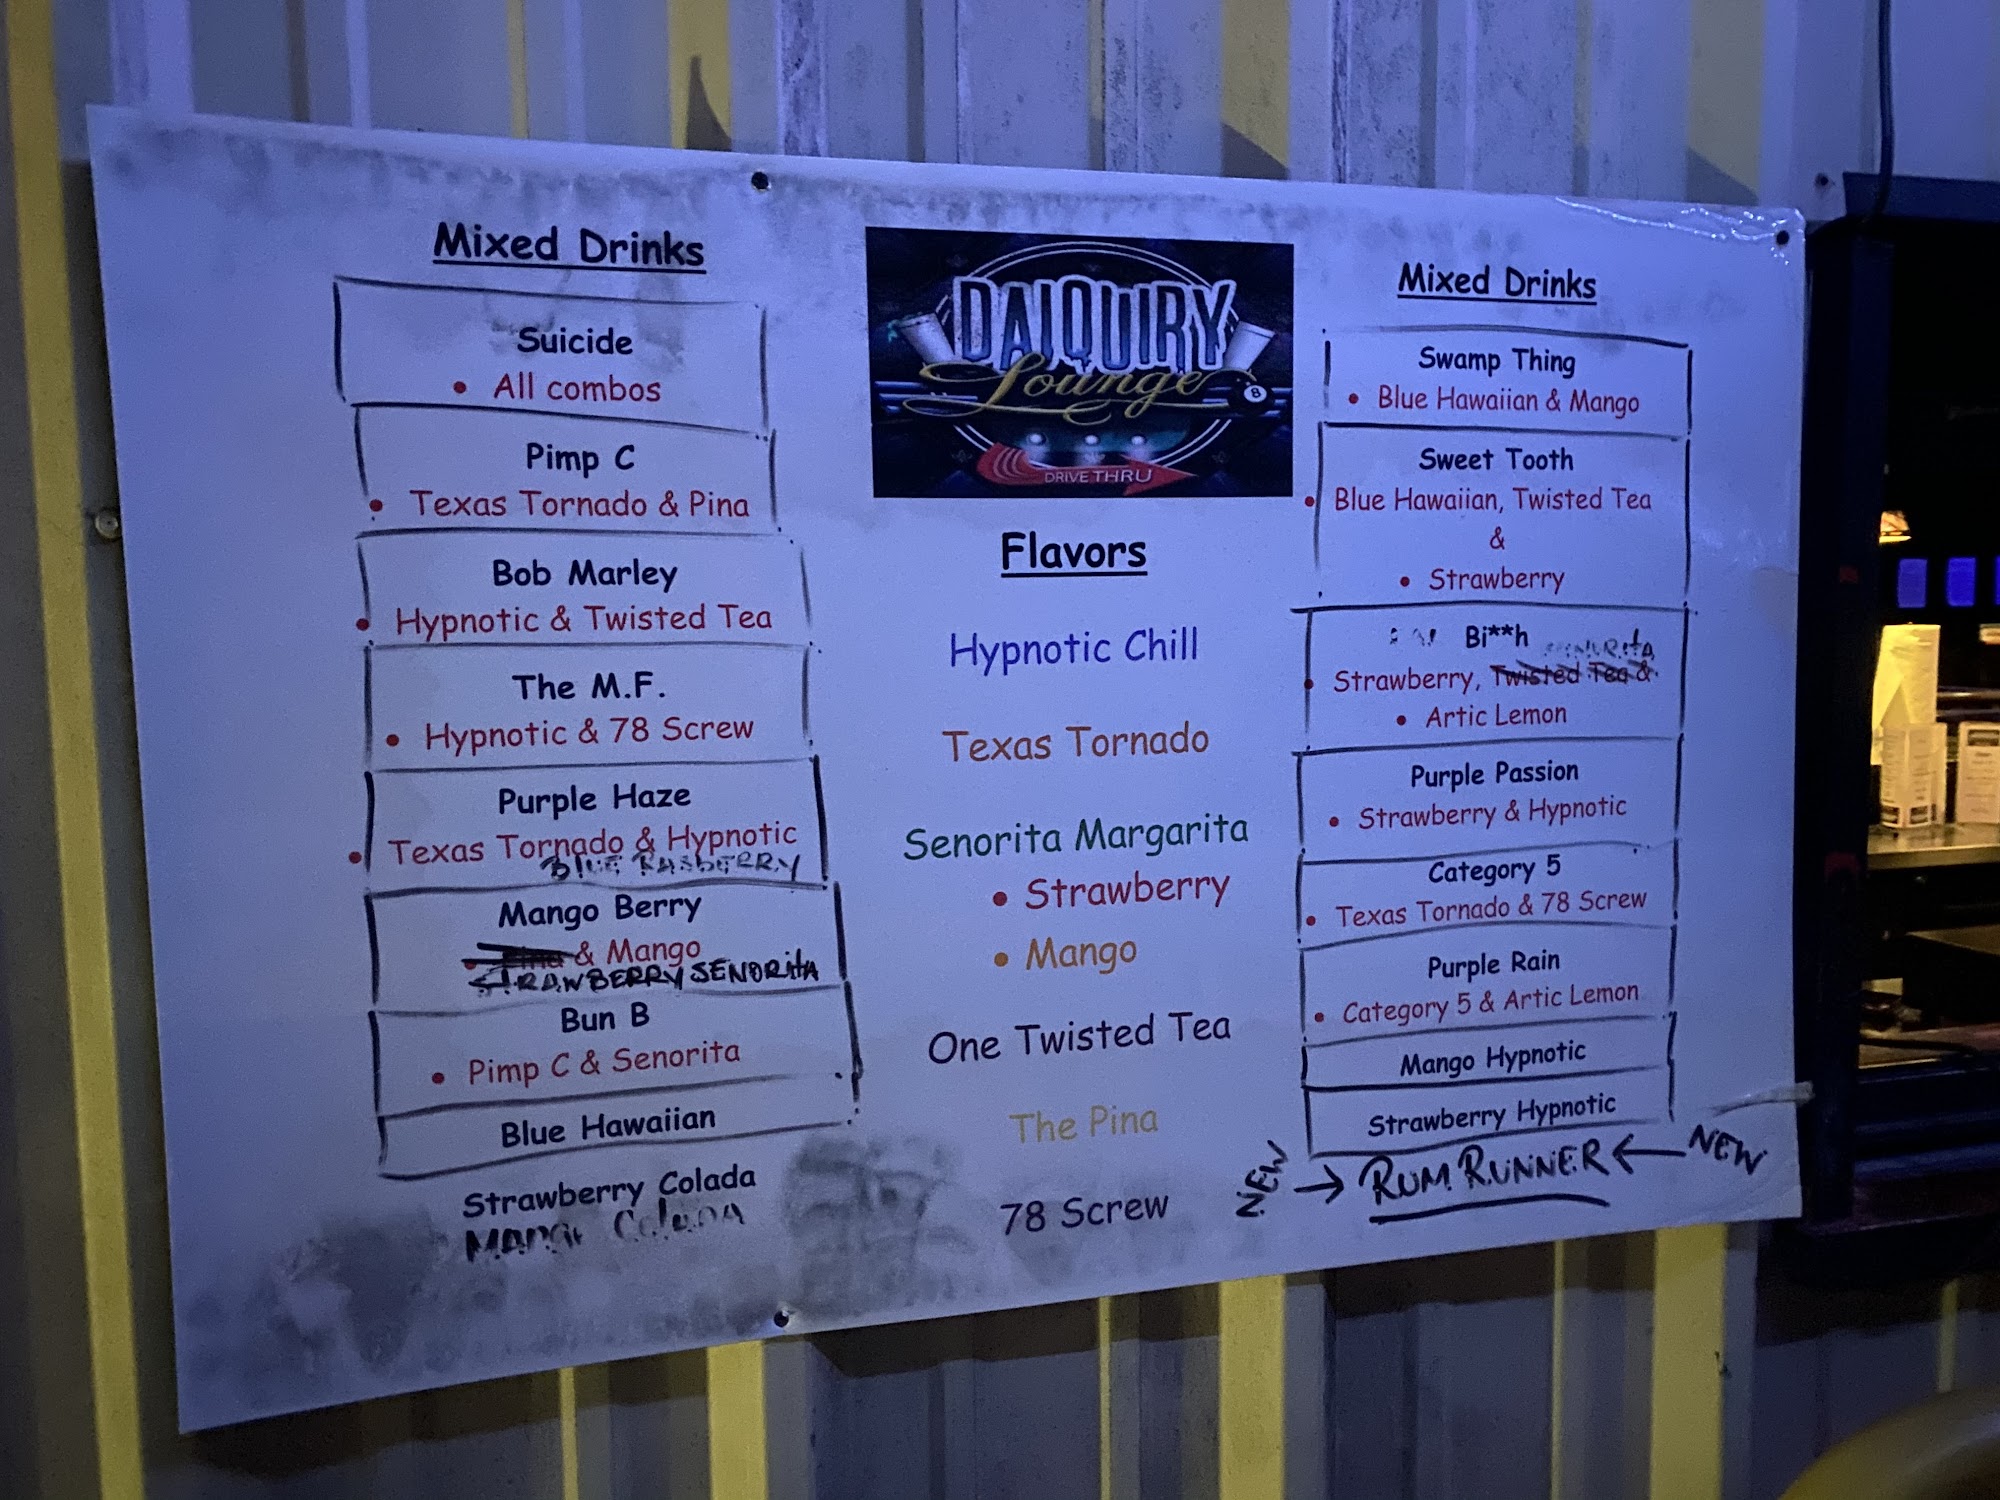 Mixed Drinks
Suicide
• All combos
Pimp C
• Texas Tornado & Pina
Bob Marley
• Hypnotic & Twisted Tea
The M.F.
• Hypnotic & 78 Screw
Purple Haze
• Texas Tornado & Hypnotic
BLUE RASBERRY
Mango Berry
& Mango
STRAWBERRY SENORITA
Bun B
• Pimp C & Senorita
Blue Hawaiian
Strawberry Colada
MANGO COLADA
DAIQUIRY
Lounge
8
DRIVE THRU
Flavors
Hypnotic Chill
Texas Tornado
Senorita Margarita
• Strawberry
• Mango
One Twisted Tea
The Pina
78 Screw
Mixed Drinks
Swamp Thing
• Blue Hawaiian & Mango
Sweet Tooth
• Blue Hawaiian, Twisted Tea
&
• Strawberry
Bi**h
• Strawberry, Twisted Tea &
• Artic Lemon
Purple Passion
• Strawberry & Hypnotic
Category 5
• Texas Tornado & 78 Screw
Purple Rain
• Category 5 & Artic Lemon
Mango Hypnotic
Strawberry Hypnotic
NEW → RUM RUNNER ← NEW